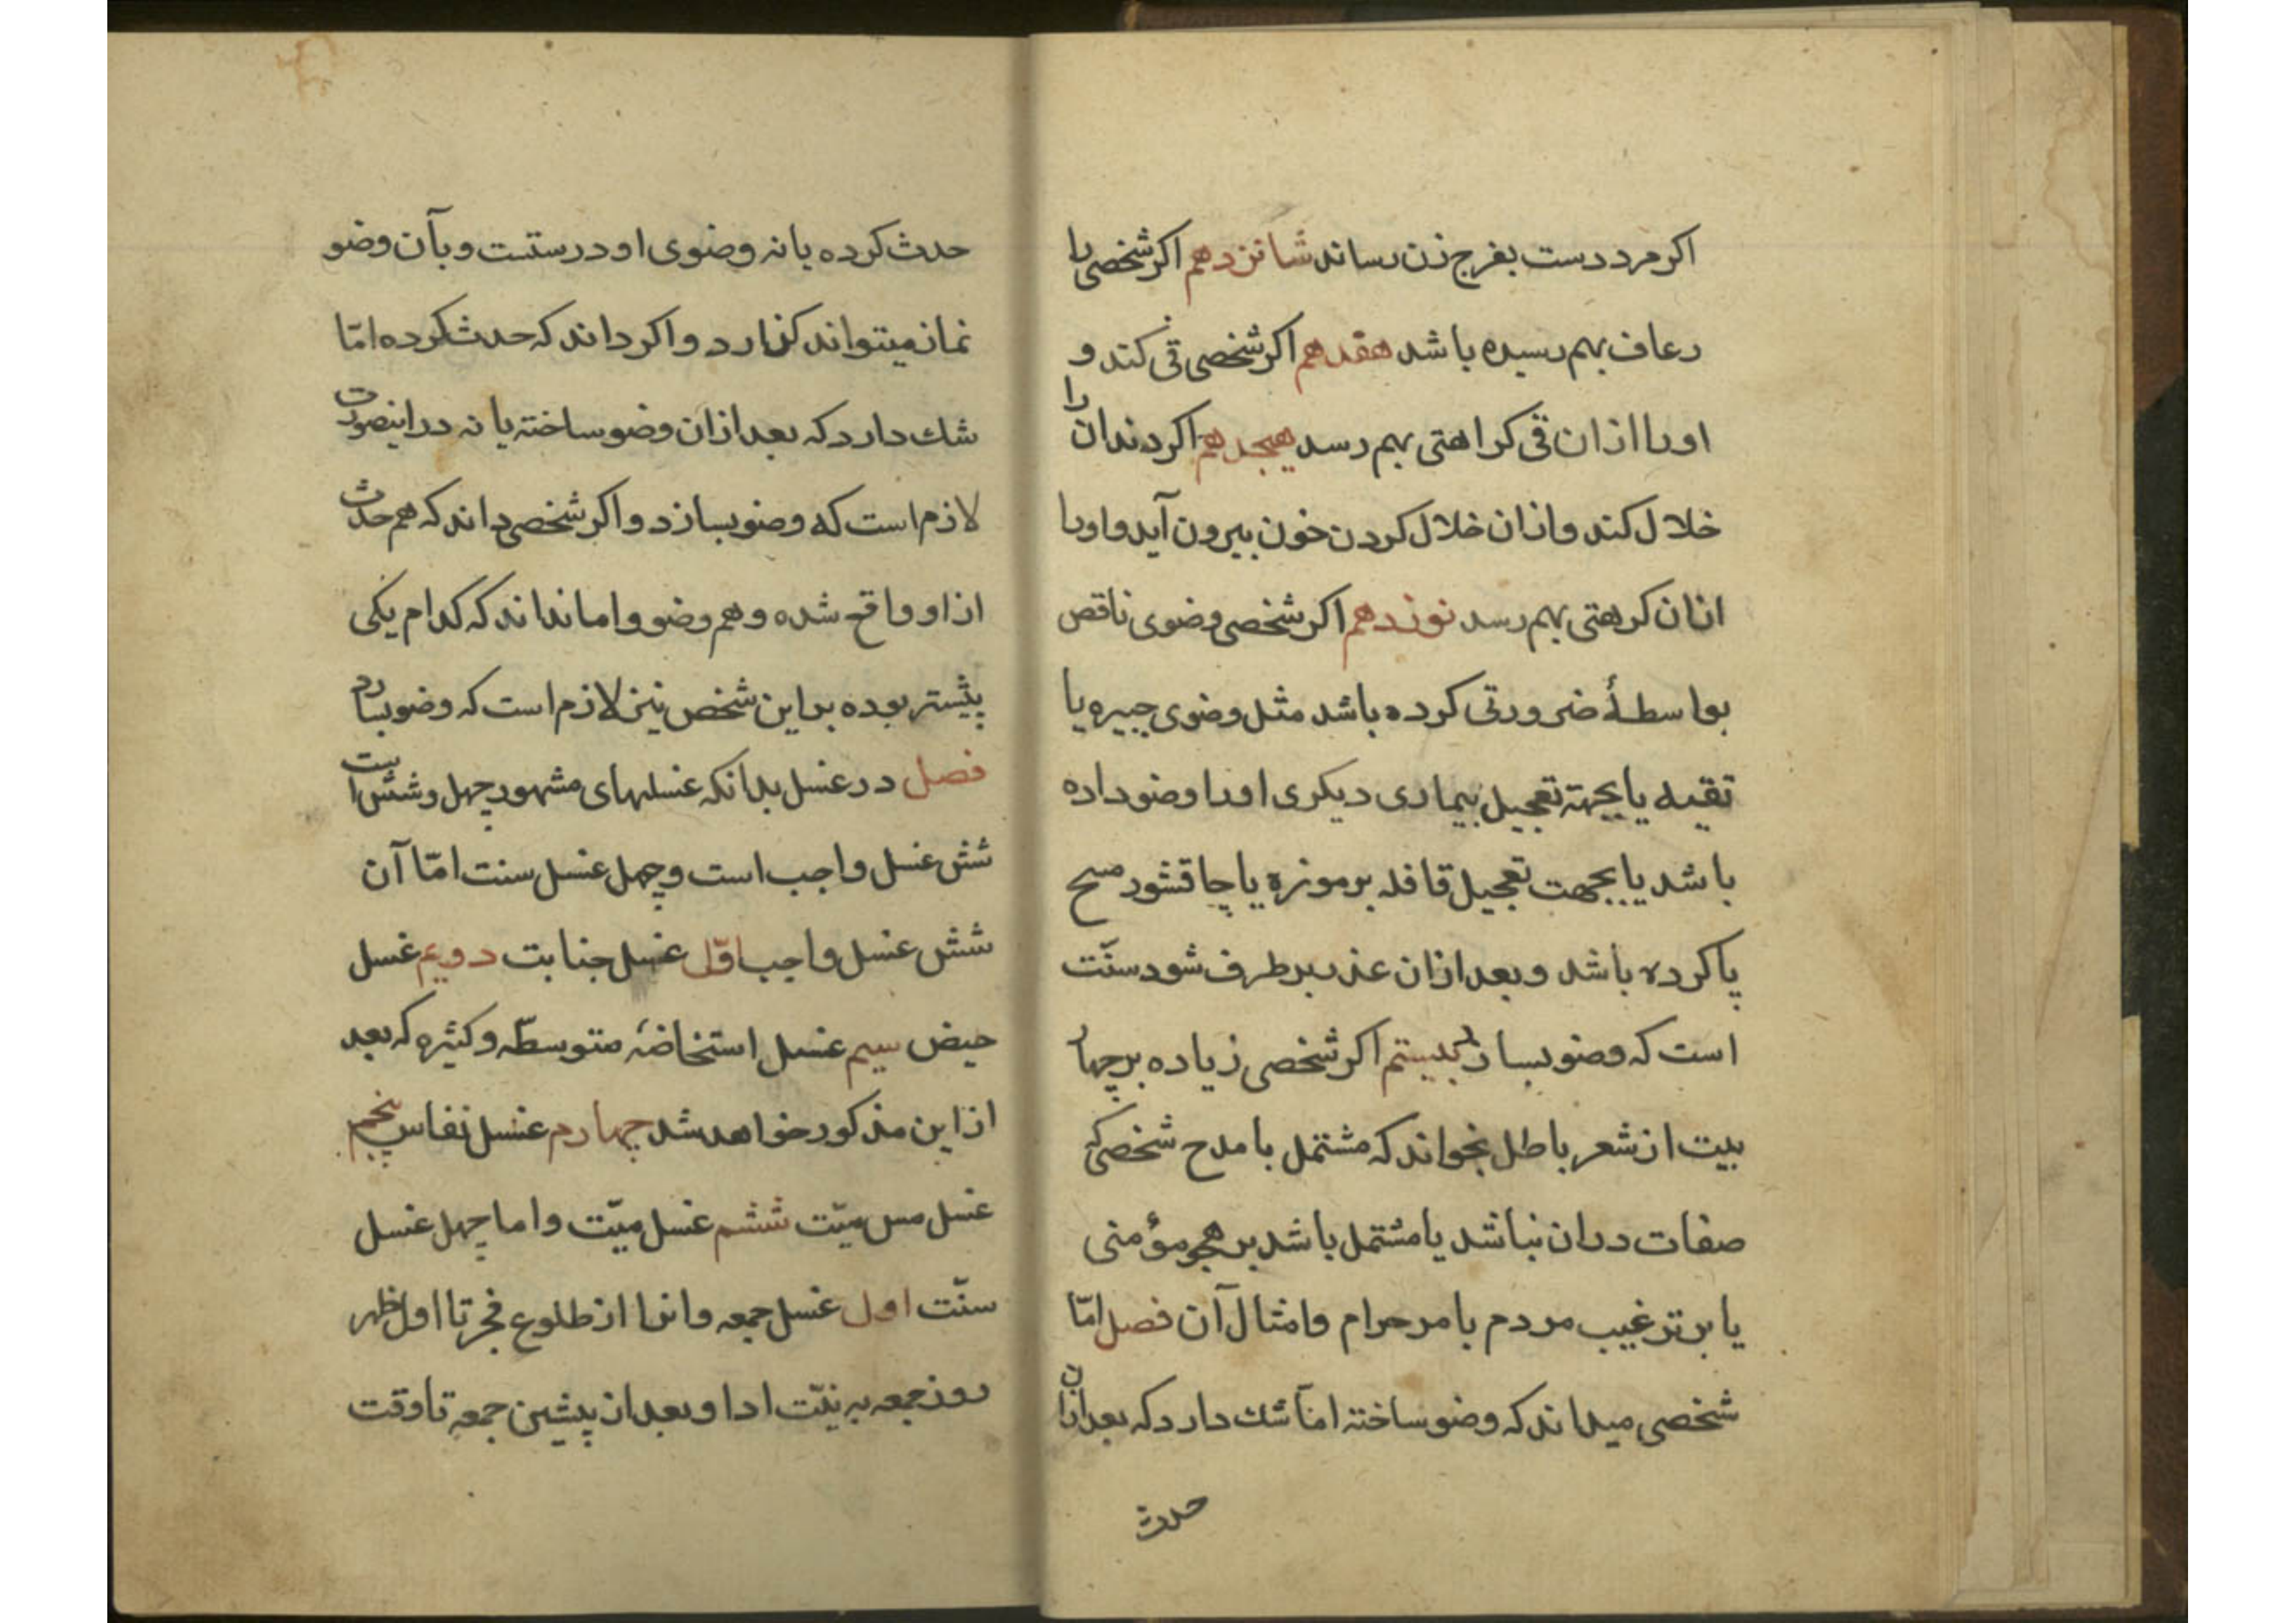 اکر مرد دست بفرج زن رساند شانزدهم اکر شخصی را
رعاف بهم رسیده باشد هفدهم اکر شخصی قی کند و
او را از ان قی کراهتی بهم رسد هیجدهم اکر دندان را
خلال کند و ازان خلال کردن خون بیرون آید و اورا
ازان کرهتی بهم رسد نوزدهم اکر شخصی وضوی ناقص
بواسطهٔ ضرورتی کرده باشد مثل وضوی جبیره یا
تقیه یا بجهتة تعجیل بیماری دیکری اورا وضو داده
باشد یا بجهت تعجیل قافله بر موزه یا چاقشور مسح
پا کرده باشد و بعد ازان عذر برطرف شود سنّت
است که وضو بسازد بیستم اکر شخصی زیاده بر چهار
بیت از شعر باطل بخواند که مشتمل با مدح شخصی که
صفات دران نباشد یا مشتمل باشد بر هجو مؤمنی
یا بر ترغیب مردم بامر حرام و امثال آن فصل امّا
شخصی میداند که وضو ساخته امّا شک دارد که بعد ازان
حدث
حدث کرده یا نه وضوی او درستست و بآن وضو
نماز میتواند کذارد و اکر داند که حدث کرده امّا
شك دارد که بعد ازان وضو ساخته یا نه دراینصورت
لازم است که وضو بسازد و اکر شخصی داند که هم حدث
ازاو واقع شده و هم وضو و اما نداند که کدام یکی
پیشتر بوده براین شخص نیز لازم است که وضو بسازد
فصل در غسل بدانکه غسلهای مشهور چهل و شش است
شش غسل واجب است و چهل غسل سنت امّا آن
شش غسل واجب اوّل غسل جنابت دویم غسل
حیض سیم غسل استخاضهٔ متوسطّه و کثیره که بعد
ازاین مذکور خواهد شد چهارم غسل نفاس پنجم
غسل مس میّت ششم غسل میّت و اما چهل غسل
سنّت اول غسل جمعه و انرا از طلوع فجر تا اول ظهر
روز جمعه به نیّت ادا و بعد از پیشین جمعه تا وقت